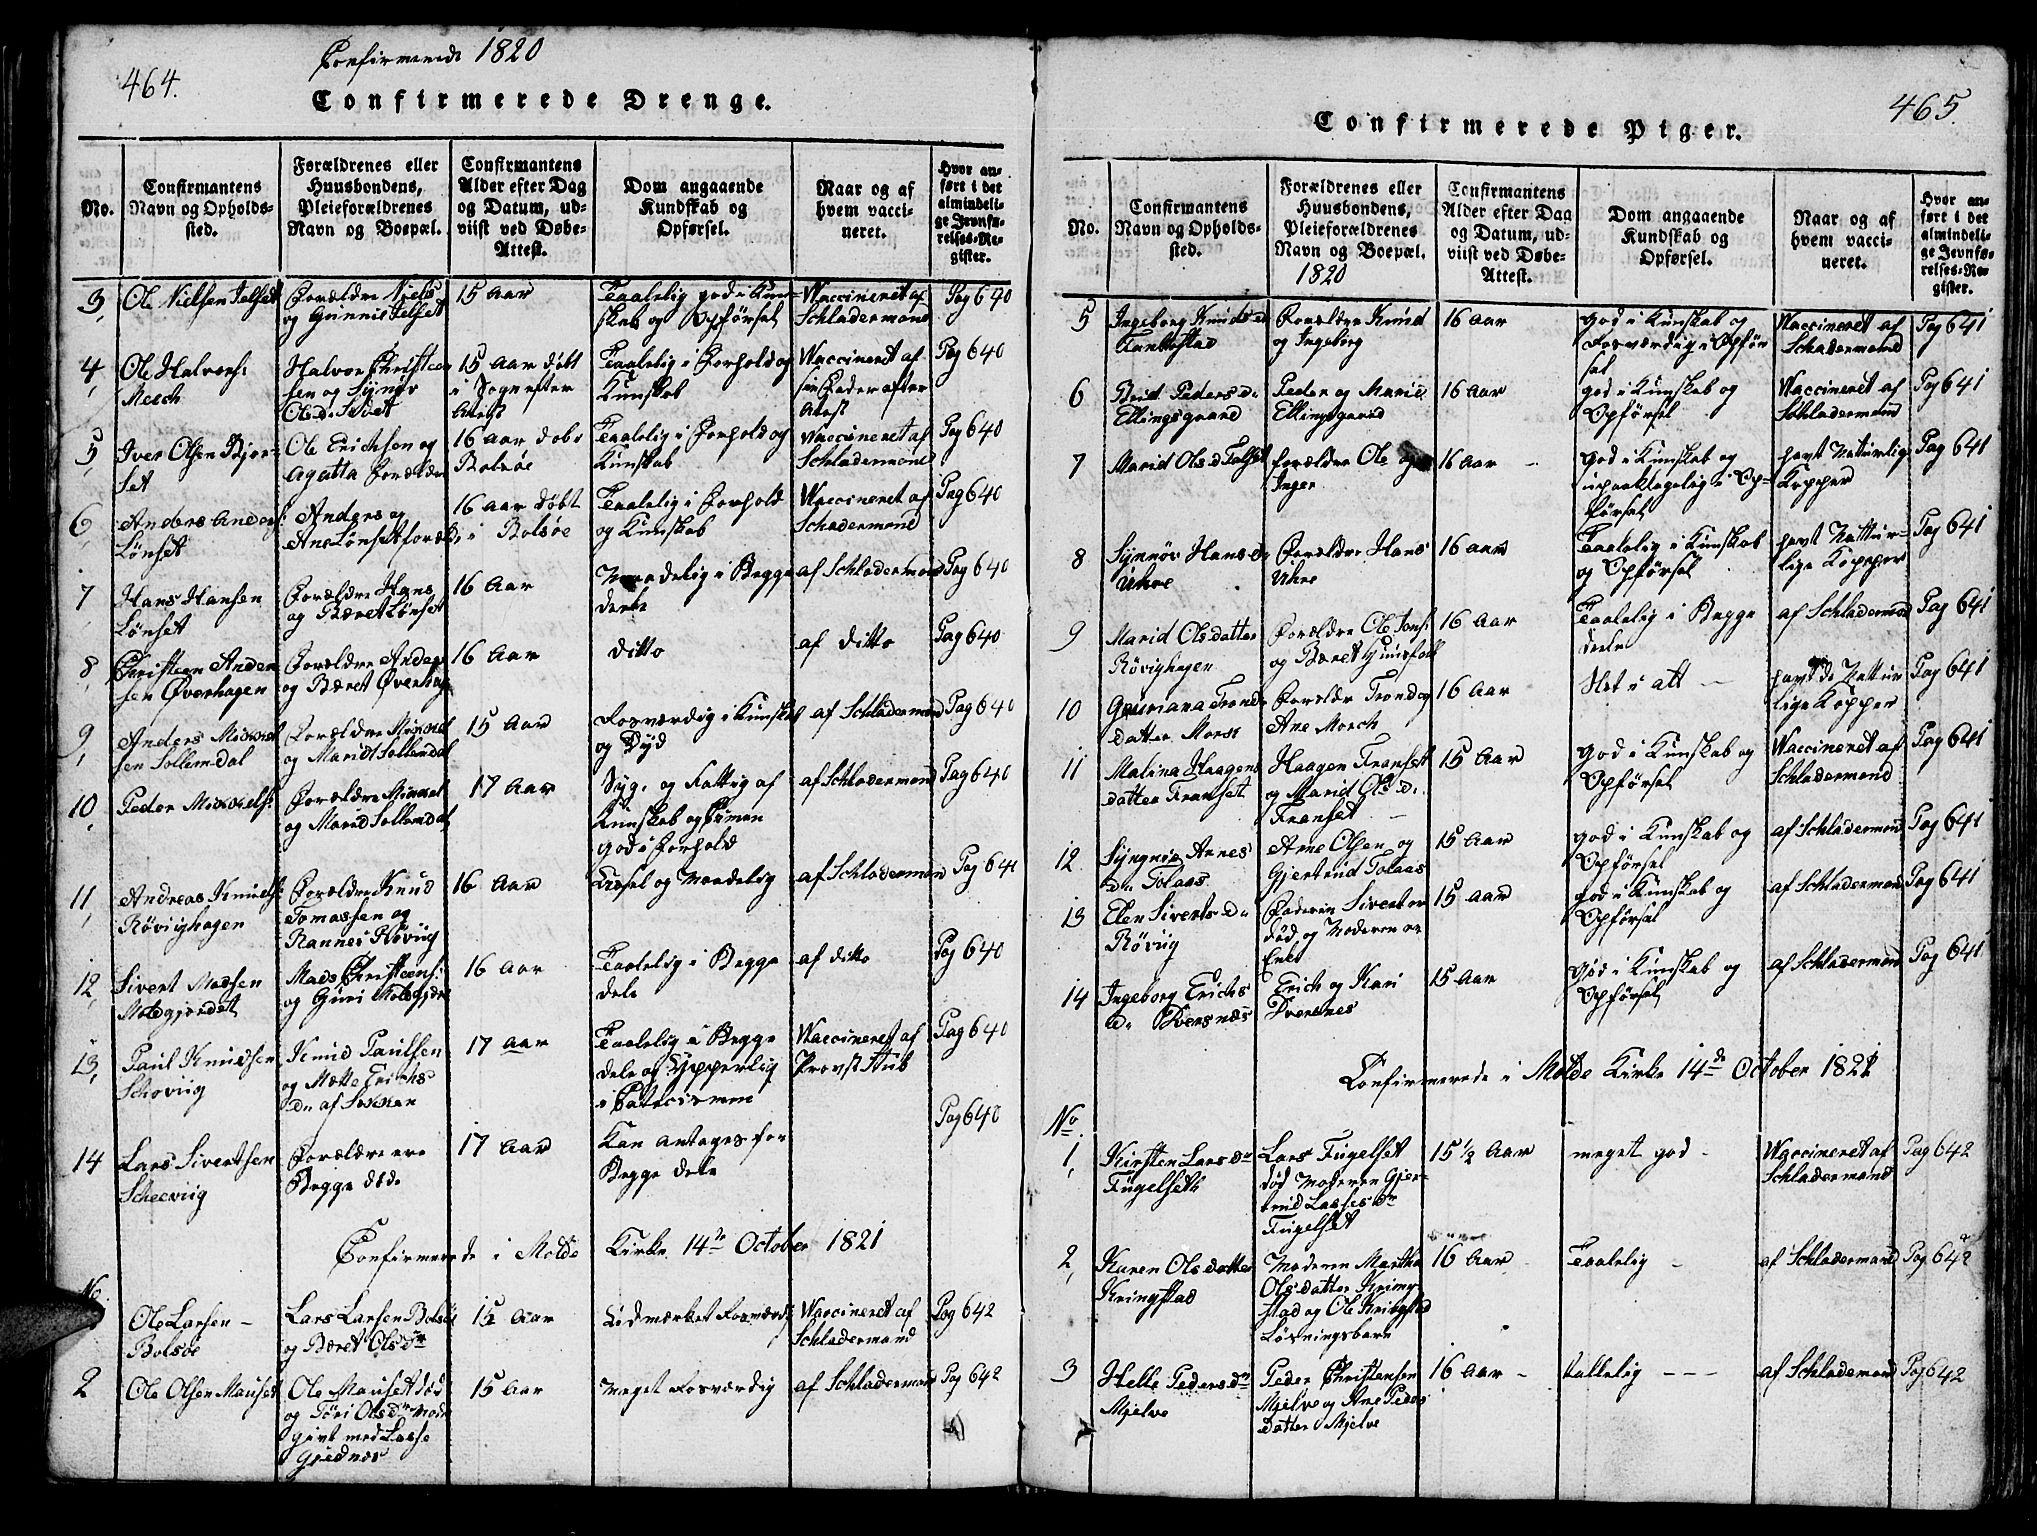 464.
Confirmerede 1820
Confirmerede Drenge.
No.
Confirmantens
Navn og Opholds-
sted.
Forældrenes eller
Huusbondens,
Pleieforældrenes
Navn og Boepæl.
Confirmantens
Alder efter Dag
og Datum, ud-
viist ved Døbe-
Attest.
Dom angaaende
Kundskab og
Opførsel.
Naar og af
hvem vacci-
neret.
Hvor an-
ført i det
almindeli-
ge Jevnfø-
relses-Re-
gister.
3, Ole Nielsen Jelset
Forældre Niels
og Gunnil Jelset
15 Aar
Taalelig god i Kun-
skab og Opførsel
Waccineret af
Schladermand
Pag 640
4, Ole Halvors:
Reech
Halvor Christen
sen og Synnø
Olsd.
15 Aar døbt
i Sogn efter
Attest
Taalelig i Forhold og
Kunskab
Waccineret af
sin Fader efter
Atest
Pag 640
5, Iver Olsen Bjør-
set
Ole Erichsen og
Agatta Forældre
16 Aar dobt
Bolsøe
Taalelig i Forhold og
Kunskab
Waccineret af
Schladermand
Pag 640
6, Anders Anders:
Lønset
Anders og
Ane Lønset foræld:
16 Aar døbt
i Bolsøe
Taalelig i Forhold
og Kunskab
Waccineret af
Schladermand
Pag 640
7, Hans Hansen
Lønset
Forældre Hans
og Bæret Lønset
16 Aar
Maadelig i Begge
deele
af Schladermand
Pag 640
8, Christen Ander
sen Øverhagen
Forældre Anders
og Bæret Øverhag
16 Aar
ditto
af ditto
Pag 640
9, Anders Mickel
sen Sollemdal
Forældre Mickel
og Marit Sollemdal
15 Aar
Forsværdig i Kunskab
og Dyd
af Schladermand
Pag 640
10, Peder Mickels:
Forældre Mickel
og Marit Sollemdal
17 Aar
Syg. og Fattig af
Kunskab og
god i Forhold
af Schladermand
Pag 640
11, Andreas Knuds:
Røvighagen
Forældre Knud
Tomassen og
Rannei Røviig
16 Aar
og Maadelig
af Schladermand
Pag 641
12, Sivert Madsen
Moldgjerdet
Mads Christens:
og Guri Moldgjer
16 Aar
Taalelig i Begge
dele
af ditto
Pag 640
13, Paul Knudsen
Schoviig
Knud Paulsen
og Mette Erichs
Dr. af
17 Aar
Taalelig i Begge
dele og ypperlig
i Catecismen
Waccineret af
Provst Stub
Pag 640
14 Lars Sivertsen
Scheeviig
Forældre ere
Begge død.
17 Aar
Kan antages for
Begge dele
Pag 640
Confirmerede i Molde Kirke 14de October 1821
No.
Ole Larsen -
Bolsøe
Lars Larsen Bolsøe
og Bæret Olsdr
15 Aar
Udmærket Forsværdig
Waccineret af
Schladermand
Pag 642
2 Ole Olsen Mauset
Ole Mauset død
og Tøri Olsdr Mode
givt med Lasse
Gjednæs
15 Aar
Meget Forsværdig
af Schladermand
Pag 642
465
Confirmerede Piger.
No.
Confirmantens
Navn og Opholds-
sted.
Forældrenes eller
Huusbondens,
Pleieforældrenes
Navn og Boepæl.
1820
Confirmantens
Alder efter Dag
og Datum, ud-
viist ved Døbe-
Attest.
Dom angaaende
Kundskab og
Opførsel.
Naar og af
hvem vacci-
neret.
Hvor an-
ført i det
almindeli-
ge Jevnfø-
relses-Re-
gister.
5 Ingeborg Knudsd
Forældre Knud
og Ingeborg
16 Aar
God i Kunskab og
Forsværdig i Opfør
sel
Waccineret af
Schladermand
Pag 641
6 Beret Pedersd:
Ellingsgaard
Peder og Marie
Ellingsgaard
16 Aar
god i Kunskab og
Opførsel
Waccineret af
Schladermand
Pag 641
7 Marid Olsd
forældre Ole og
Inger
16 Aar -
God i Kunskab og
upaaklagelig i Op-
førsel
havt Naturlige
Kopper
Pag 641
8 Synnøv Hansd:
Uhre
Forældre Hans
Uhre
16 Aar
Taalelig i Kunskab
og Opførsel
havt Nattur-
lige Kopper
Pag 641
9 Marid Olsdatter
Røvighagen
Forældre Ole Jons:
og Bæret Huusfolk
16 Aar
Taalelig i Begge
deele
af Schladermand
Pag 641
10 Gjuriana Trond
datter Morst
Forældr Trond og
Ane Morch
16 Aar
Slet i att -
havt de Nattur
lige Kopper
Pag 641
11 Malina Haagens
datter Franset
Haagen Franset
og Marid Olsd:
Franset -
15 Aar
God i Kunskab og
Opførsel
Waccineret af
Schladermand
Pag 641
12 Syngnie Arnes
D: Tolaas
Arne Olsen og
Gjertrud Tolaas
15 Aar
God i Kunskab og
Opførsel
af Schladermand
Pag 641
13 Elen Siverts D:
Røviig
Faderen Sivert er
død og Moderen er
Enke
15 Aar
god i Kunskab og
Opførsel
af Schladermand
Pag 641
14 Ingeborg Erichs
D: Tversnæs
Erich og Kari
Tversnes
15 Aar
God i Kunskab og
Opførsel
af Schladermand
Pag 641
Confirmerede i Molde Kirke 14de October 1821
No.
1, Kirsten Larsdr
Fugelseth
Lars Fugelset
død Moderen Gjer-
trud Lasses dr
Fugelset
15 1/2 Aar
meget god -
Waccineret af
Schladermand
Pag 642
2, Karen Olsdatter
Kringstad
Moderen Martha
Olsdatter Kring
stad og Ole Kringstad
Løsningsbarn
16 Aar
Taalelig -
af Schladermand
Pag 642
3 Helle Pedersdr
Mjelve
Peder Christensen
Mjelve og Ane Peders
datter Mjelve
16 Aar -
tallelig - - -
af Schladermand
Pag 642